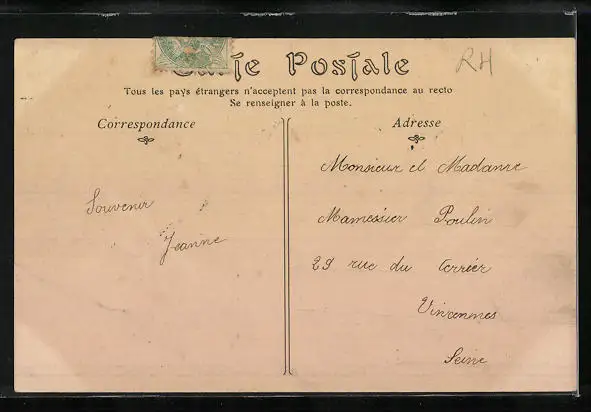 Carte Postale
RH
Tous les pays étrangers n'acceptent pas la correspondance au recto
Se renseigner à la poste.
Correspondance
Adresse
Souvenir
Jeanne
Monsieur et Madame
Mamessier Poulin
29 rue du Terrier
Vincennes
Seine